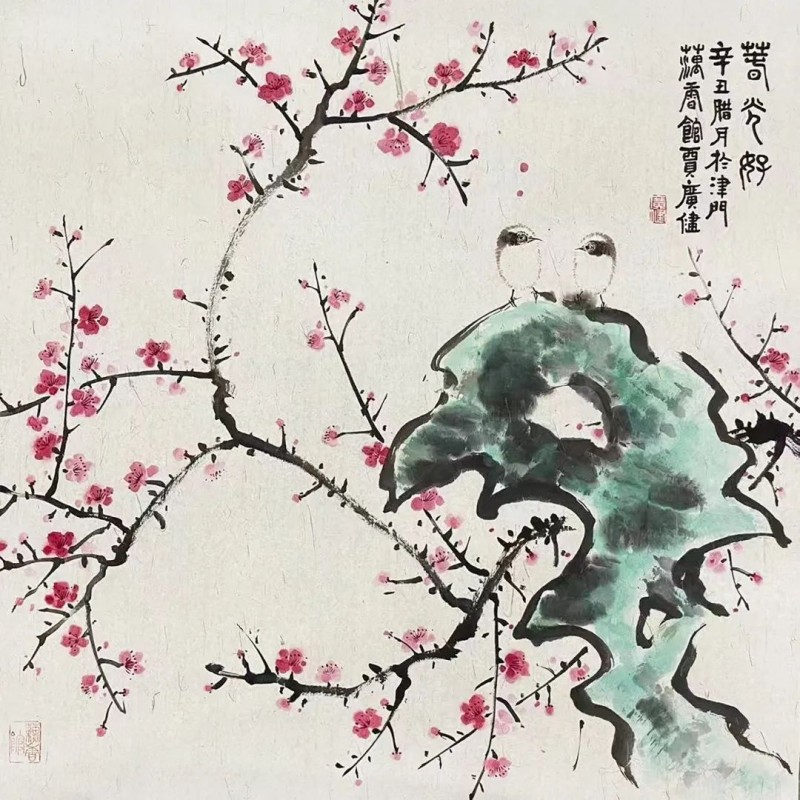 春光好
辛丑腊月於津門
蕅香館賈廣健